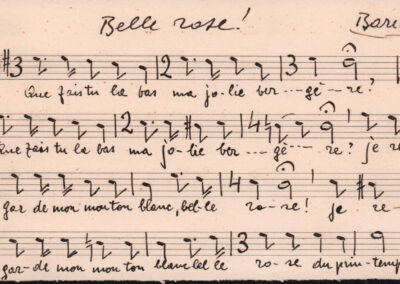 Belle rose! Bar
3 2 3
Que fais tu la bas ma jo-lie ber---gè--re?
2 4
Que fais tu la bas ma jo-lie ber---gè--re? je re
4
gar de mon mouton blanc, bel-le ro-se! je re-
3
gar-de mon mou ton blanc bel le ro-se du prin-temp